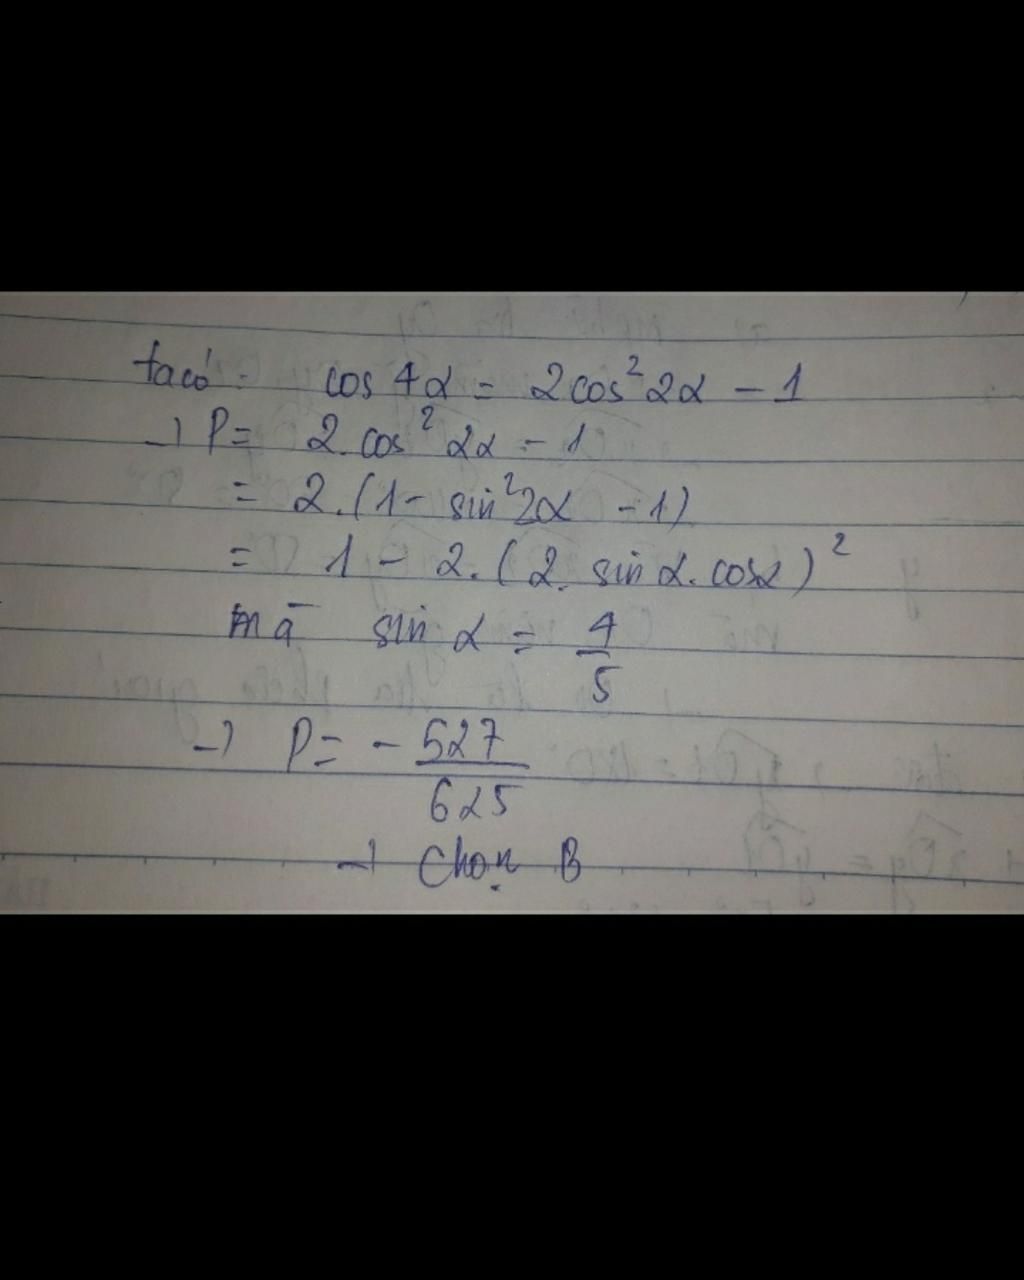 ta có: cos 4α = 2cos² 2α - 1
→ P = 2.cos² 2α - 1
= 2.(1 - sin² 2α - 1)
= 1 - 2.(2.sin α.cos α)²
mà sin α = 4/5
→ P = - 527/625
→ Chọn B